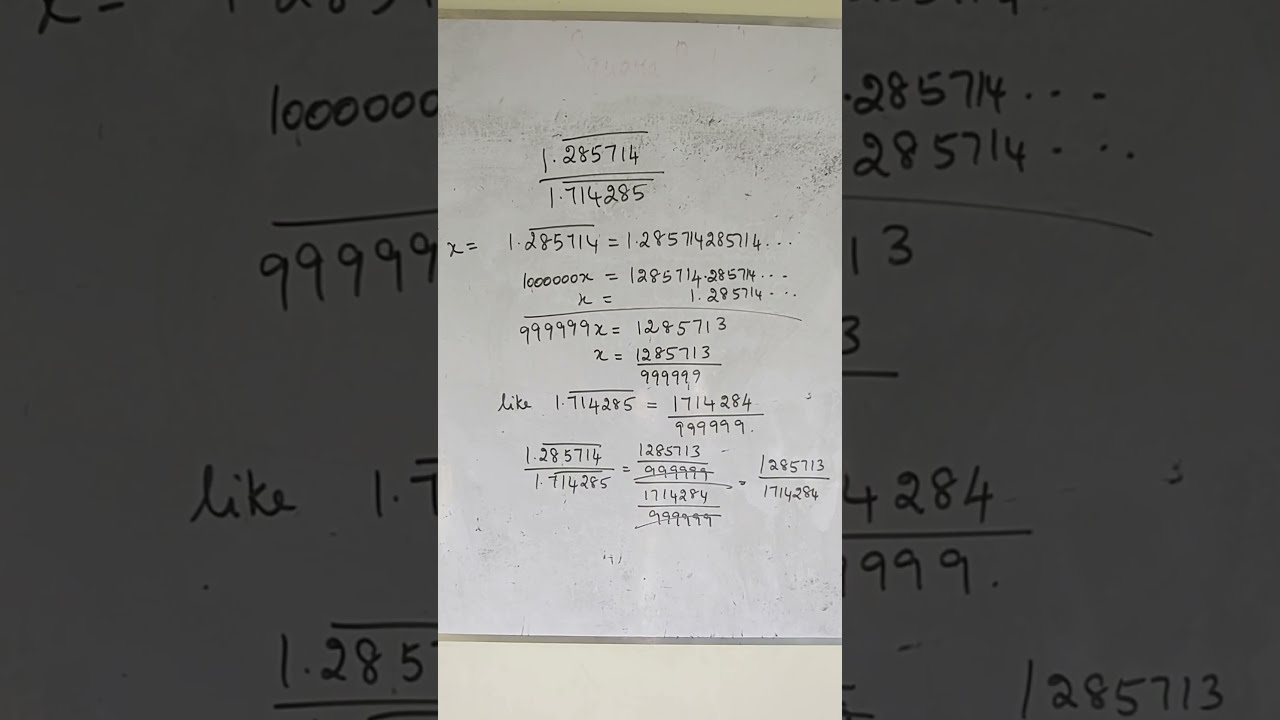 1.285714
1.714285
x = 1.285714 = 1.285714285714...
1000000x = 1285714.285714...
x = 1.285714...
999999x = 1285713
x = 1285713
999999
like 1.714285 = 1714284
999999.
1.285714 = 1285713
1.714285 999999 = 1285713
1714284 1714284
999999